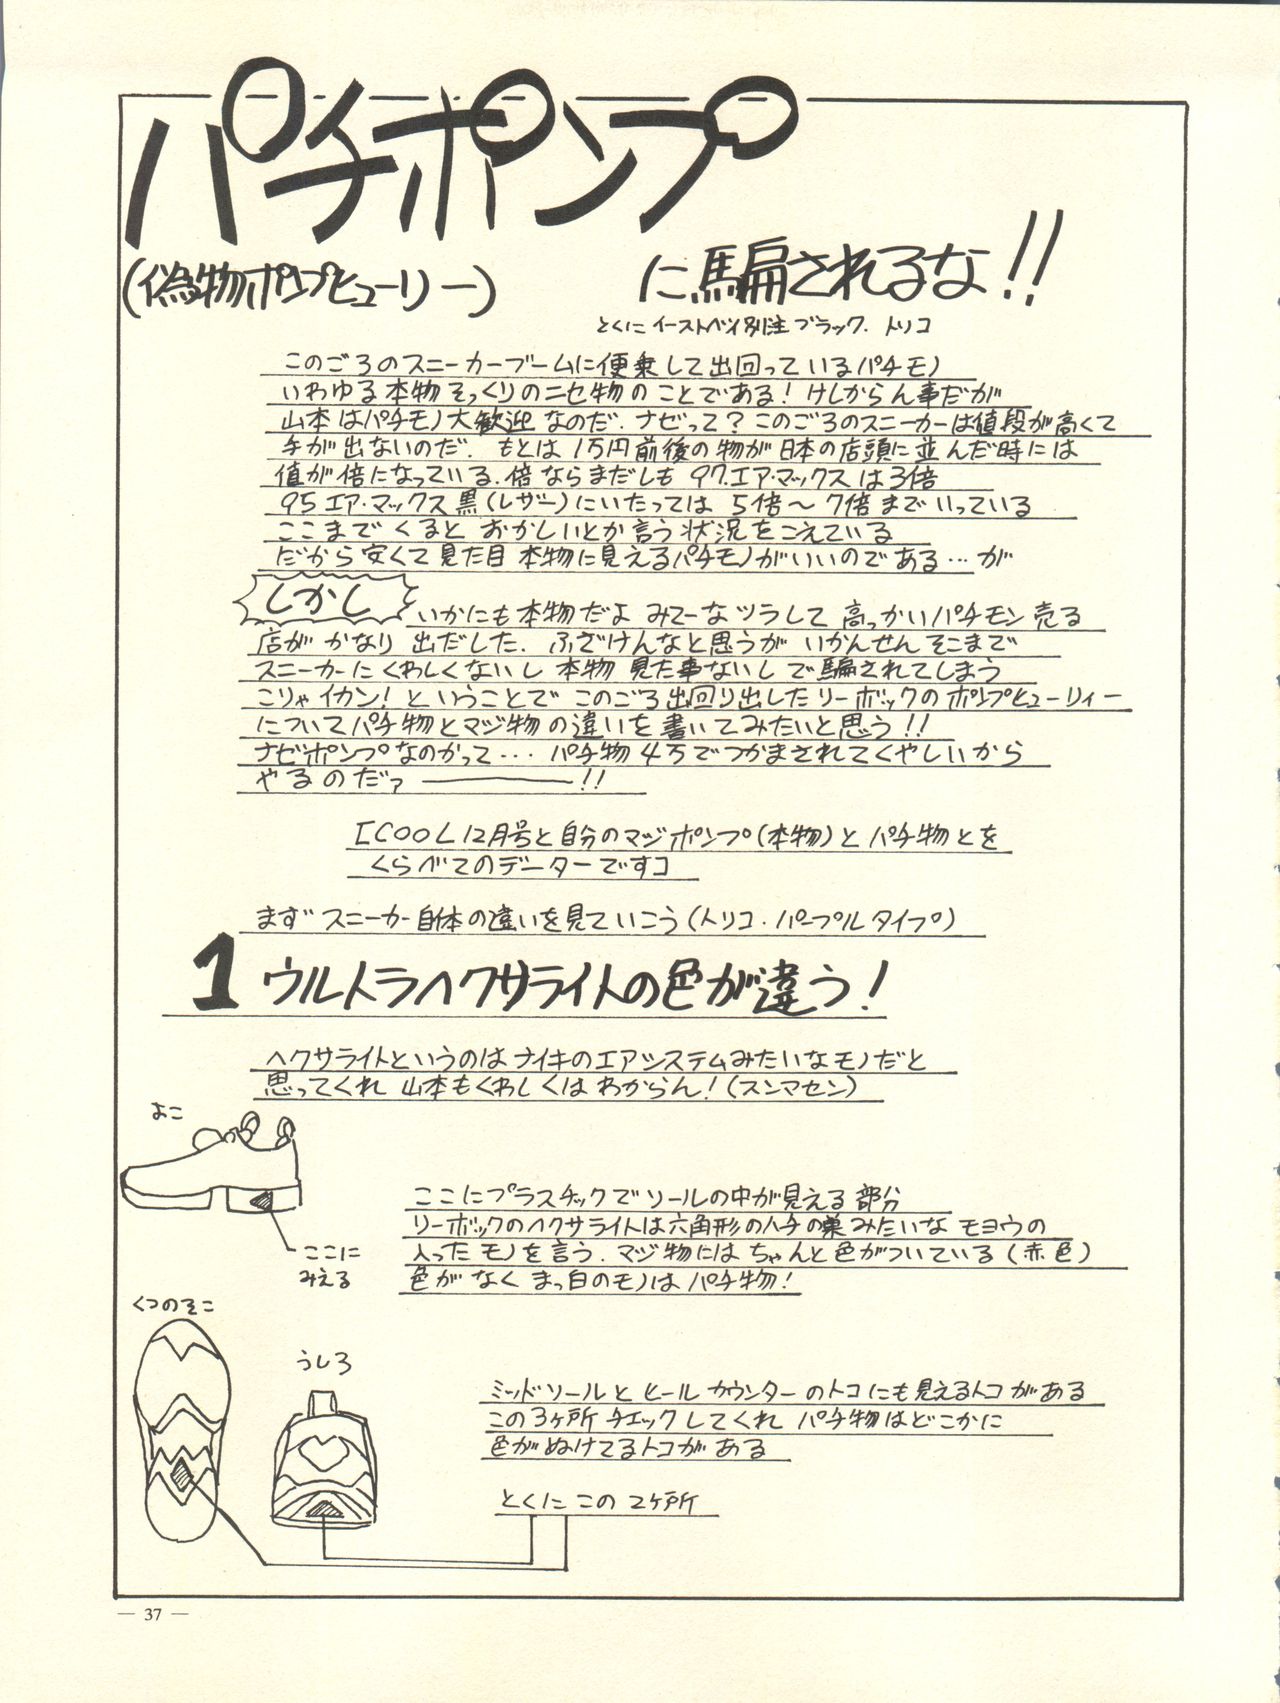 パチポンプ
(偽物ポンプヒューリー)
に騙されるな!!
とくに イーストベイ別注ブラック. トリコ
このごろのスニーカーブームに便乗して出回っているパチモノ
いわゆる本物そっくりのニセ物のことである! けしからん事だが
山本はパチモノ大歓迎なのだ. ナゼって? このごろのスニーカーは値段が高くて
手が出ないのだ. もとは 1万円前後の物が日本の店頭に並んだ時には
値が倍になっている. 倍ならまだしも 97.エア・マックスは3倍
95エア・マックス黒(レザー)にいたっては 5倍〜7倍までいっている
ここまでくると おかしいとか言う状況をこえている
だから安くて見た目本物に見えるパチモノがいいのである…が
しかし
いかにも本物だよ みてーなツラして 高っかいパチモン売る
店がかなり出だした. ふざけんなと思うが いかんせんそこまで
スニーカーにくわしくないし 本物 見た事ないしで騙されてしまう
こりゃイカン! ということで このごろ出回り出したリーボックのポンプヒューリィー
についてパチ物とマジ物の違いを書いてみたいと思う!!
ナゼポンプなのかって… パチ物4万でつかまされてくやしいから
やるのだァ――――!!
[COOL12月号と自分のマジポンプ(本物)とパチ物とを
くらべてのデーターです]
まずスニーカー自体の違いを見ていこう(トリコ・パープルタイプ)
1 ウルトラヘクサライトの色が違う!
ヘクサライトというのはナイキのエアシステムみたいなモノだと
思ってくれ 山本もくわしくはわからん!(スンマセン)
よこ
ここに
みえる
ここにプラスチックでソールの中が見える部分
リーボックのヘクサライトは六角形のハチの巣みたいなモヨウの
入ったモノを言う. マジ物にはちゃんと色がついている(赤色)
色がなくまっ白のモノはパチ物!
くつのそこ
うしろ
ミッドソールとヒールカウンターのトコにも見えるトコがある
この3ヶ所チェックしてくれ パチ物はどこかに
色がぬけてるトコがある
とくにこの2ヶ所
— 37 —